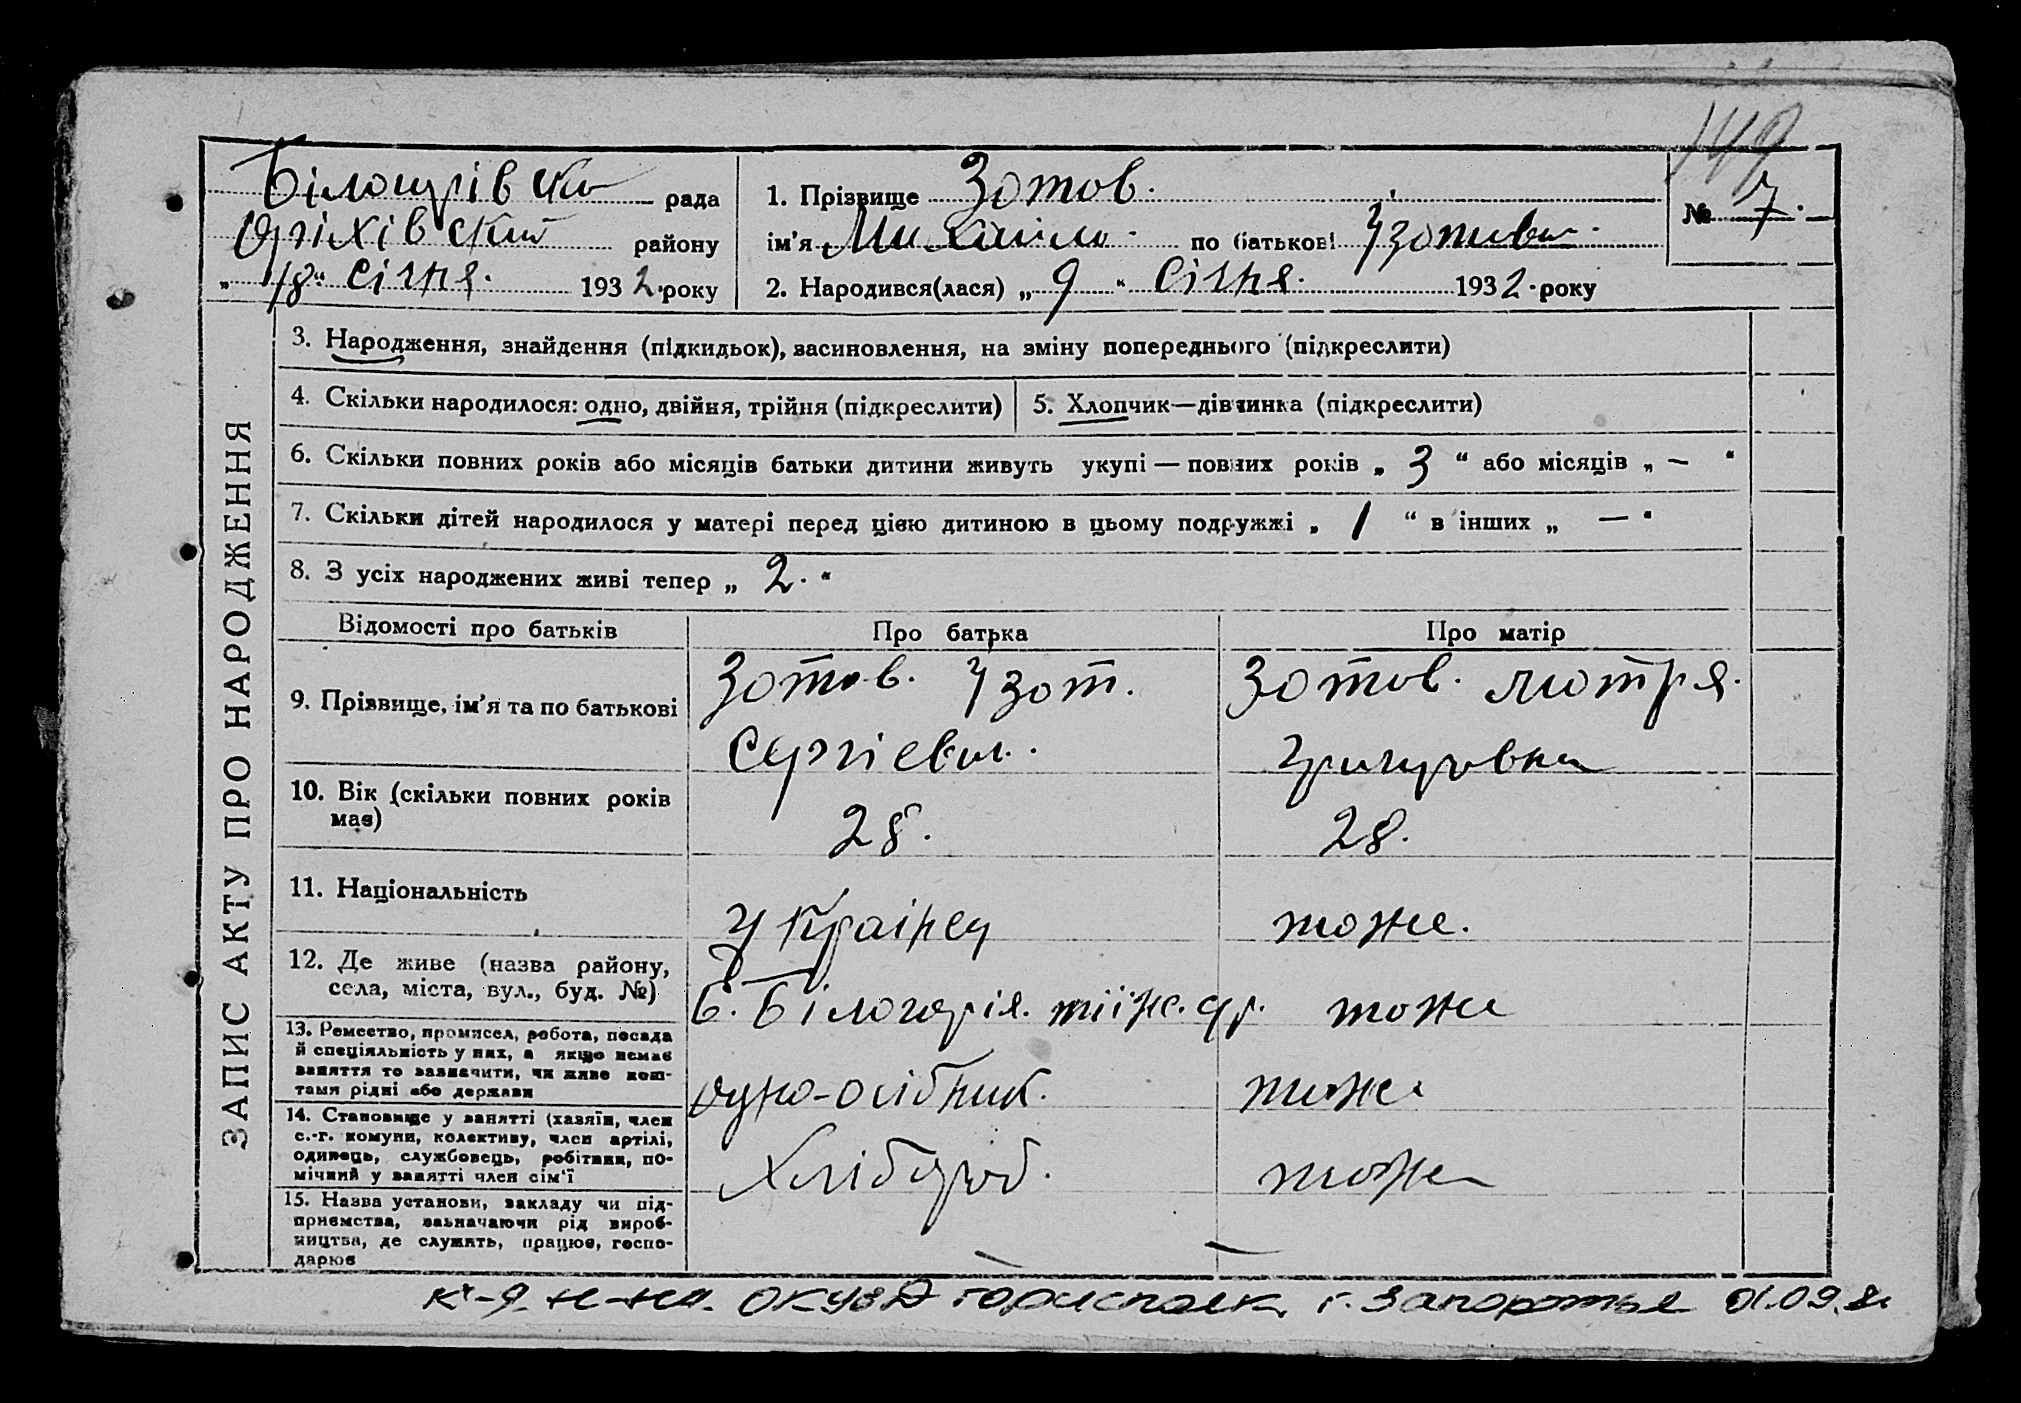 149
Білогірівська рада
Оріхівський району
„18“ Січня. 1932 року
1. Прізвище Зотов.
ім'я Михайло. по батькові Ізотович.
2. Народився(лася) „9“ Січня. 1932 року
№ 7.
ЗАПИС АКТУ ПРО НАРОДЖЕННЯ
3. Народження, знайдення (підкидьок), засиновлення, на зміну попереднього (підкреслити)
4. Скільки народилося: одно, двійня, трійня (підкреслити)
5. Хлопчик—дівчинка (підкреслити)
6. Скільки повних років або місяців батьки дитини живуть укупі — повних років „3“ або місяців „—“
7. Скільки дітей народилося у матері перед цією дитиною в цьому подружжі „1“ в інших „—“
8. З усіх народжених живі тепер „2.“
Відомості про батьків Про батька Про матір
9. Прізвище, ім'я та по батькові
Зотов. Ізот.
Сергієвич.
Зотов. Мотря.
Григоровна
10. Вік (скільки повних років
має)
28.
28.
11. Національність
Українец
тоже.
12. Де живе (назва району,
села, міста, вул., буд. №)
с. Білогорія. тііж. др.
тоже
13. Ремество, промисел, робота, посада
й спеціяльність у них, а якщо немає
заняття то зазначити, чи живе кош-
тами рідні або держави
одно-осібник.
тоже
14. Становище у занятті (хазяїн, член
с.-г. комуни, колективу, член артілі,
одинець, службовець, робітник, по-
мічний у занятті член сім'ї
Хлібороб.
тоже
15. Назва установи, закладу чи під-
приємства, зазначаючи рід вироб-
ництва, де служить, працює, госпо-
дарює
— —
горисполк. г. Запорожье 01.09.